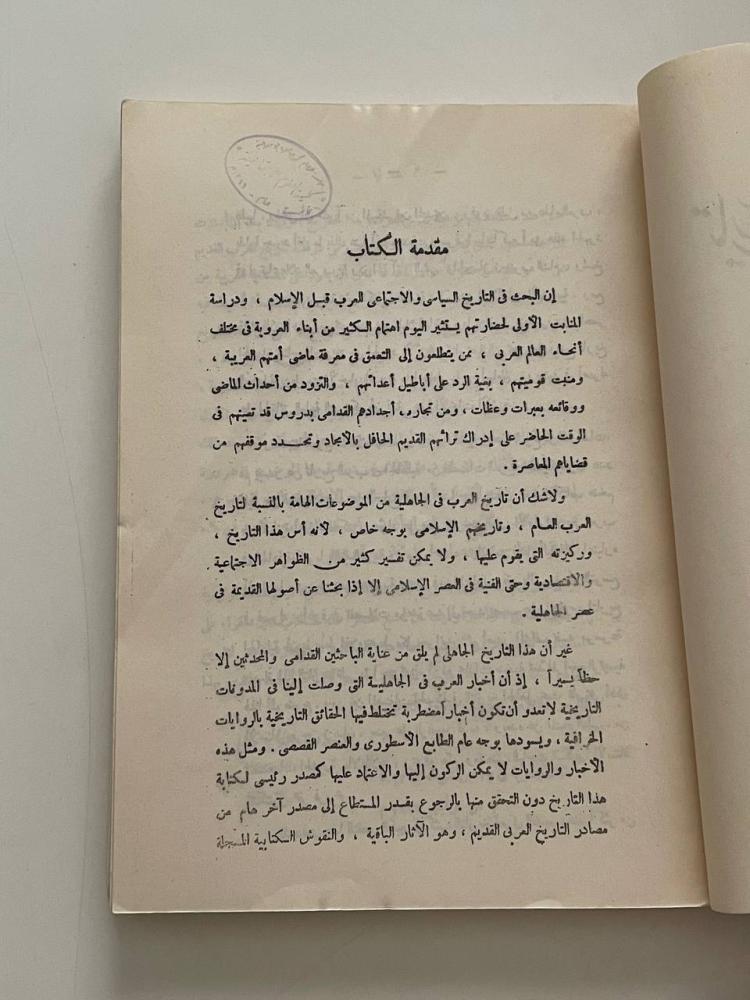 مقدمة الكتاب
إن البحث فى التاريخ السياسى والاجتماعى للعرب قبل الإسلام ، ودراسة
المنابت الأولى لحضارتهم يستثير اليوم اهتمام الكثير من أبناء العروبة فى مختلف
أنحاء العالم العربى ، ممن يتطلعون إلى التعمق فى معرفة ماضى أمتهم العربية ،
ومنبت قوميتهم ، بغية الرد على أباطيل أعدائهم ، والتزود من أحداث الماضى
ووقائعه بعبرات وعظات ، ومن تجارب أجدادهم القدامى بدروس قد تعينهم فى
الوقت الحاضر على إدراك تراثهم القديم الحافل بالأمجاد وتحدد موقفهم من
قضاياهم المعاصرة .
ولاشك أن تاريخ العرب فى الجاهلية من الموضوعات الهامة بالنسبة لتاريخ
العرب العام ، وتاريخهم الإسلامى بوجه خاص ، لأنه أس هذا التاريخ ،
وركيزته التى يقوم عليها ، ولا يمكن تفسير كثير من الظواهر الاجتماعية
والاقتصادية وحتى الفنية فى العصر الإسلامى إلا إذا بحثنا عن أصولها القديمة فى
عصر الجاهلية .
غير أن هذا التاريخ الجاهلى لم يلق من عناية الباحثين القدامى والمحدثين إلا
حظاً يسيراً ، إذ أن أخبار العرب فى الجاهلية التى وصلت إلينا فى المدونات
التاريخية لا تعدو أن تكون أخباراً مضطربة تختلط فيها الحقائق التاريخية بالروايات
الخرافية ، ويسودها بوجه عام الطابع الأسطورى والعنصر القصصى . ومثل هذه
الأخبار والروايات لا يمكن الركون إليها والاعتماد عليها كمصدر رئيسى لكتابة
هذا التاريخ دون التحقق منها بالرجوع بقدر المستطاع إلى مصدر آخر هام من
مصادر التاريخ العربى القديم ، وهو الآثار الباقية ، والنقوش الكتابية المسجلة